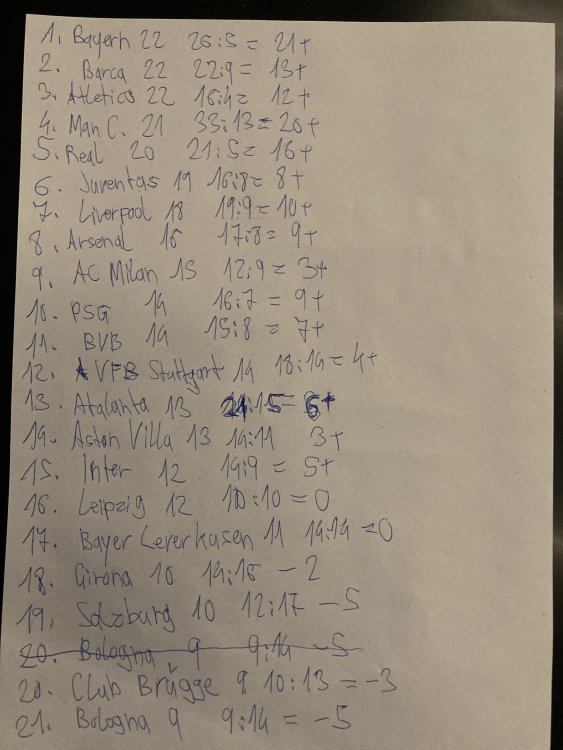 1. Bayern 22 26:5 = 21+
2. Barca 22 22:9 = 13+
3. Atletico 22 16:4= 12+
4. Man C. 21 33:13=20+
5. Real 20 21:5= 16+
6. Juventas 19 16:8= 8+
7. Liverpool 18 19:9= 10+
8. Arsenal 16 17:8= 9+
9. AC Milan 15 12:9 = 3+
10. PSG 14 16:7 = 9+
11. BVB 14 15:8 = 7+
12. VFB Stuttgart 14 18:14=4+
13. Atalanta 13 6+
14. Aston Villa 13 14:11 3+
15. Inter 12 14:9 = 5+
16. Leipzig 12 10:10 = 0
17. Bayer Leverkusen 11 14:14 =0
18. Girona 10 14:16 -2
19. Salzburg 10 12:17 -5
20. Bologna 9 9:14 -5
20. Club Brügge 9 10:13 = -3
21. Bologna 9 9:14 = -5